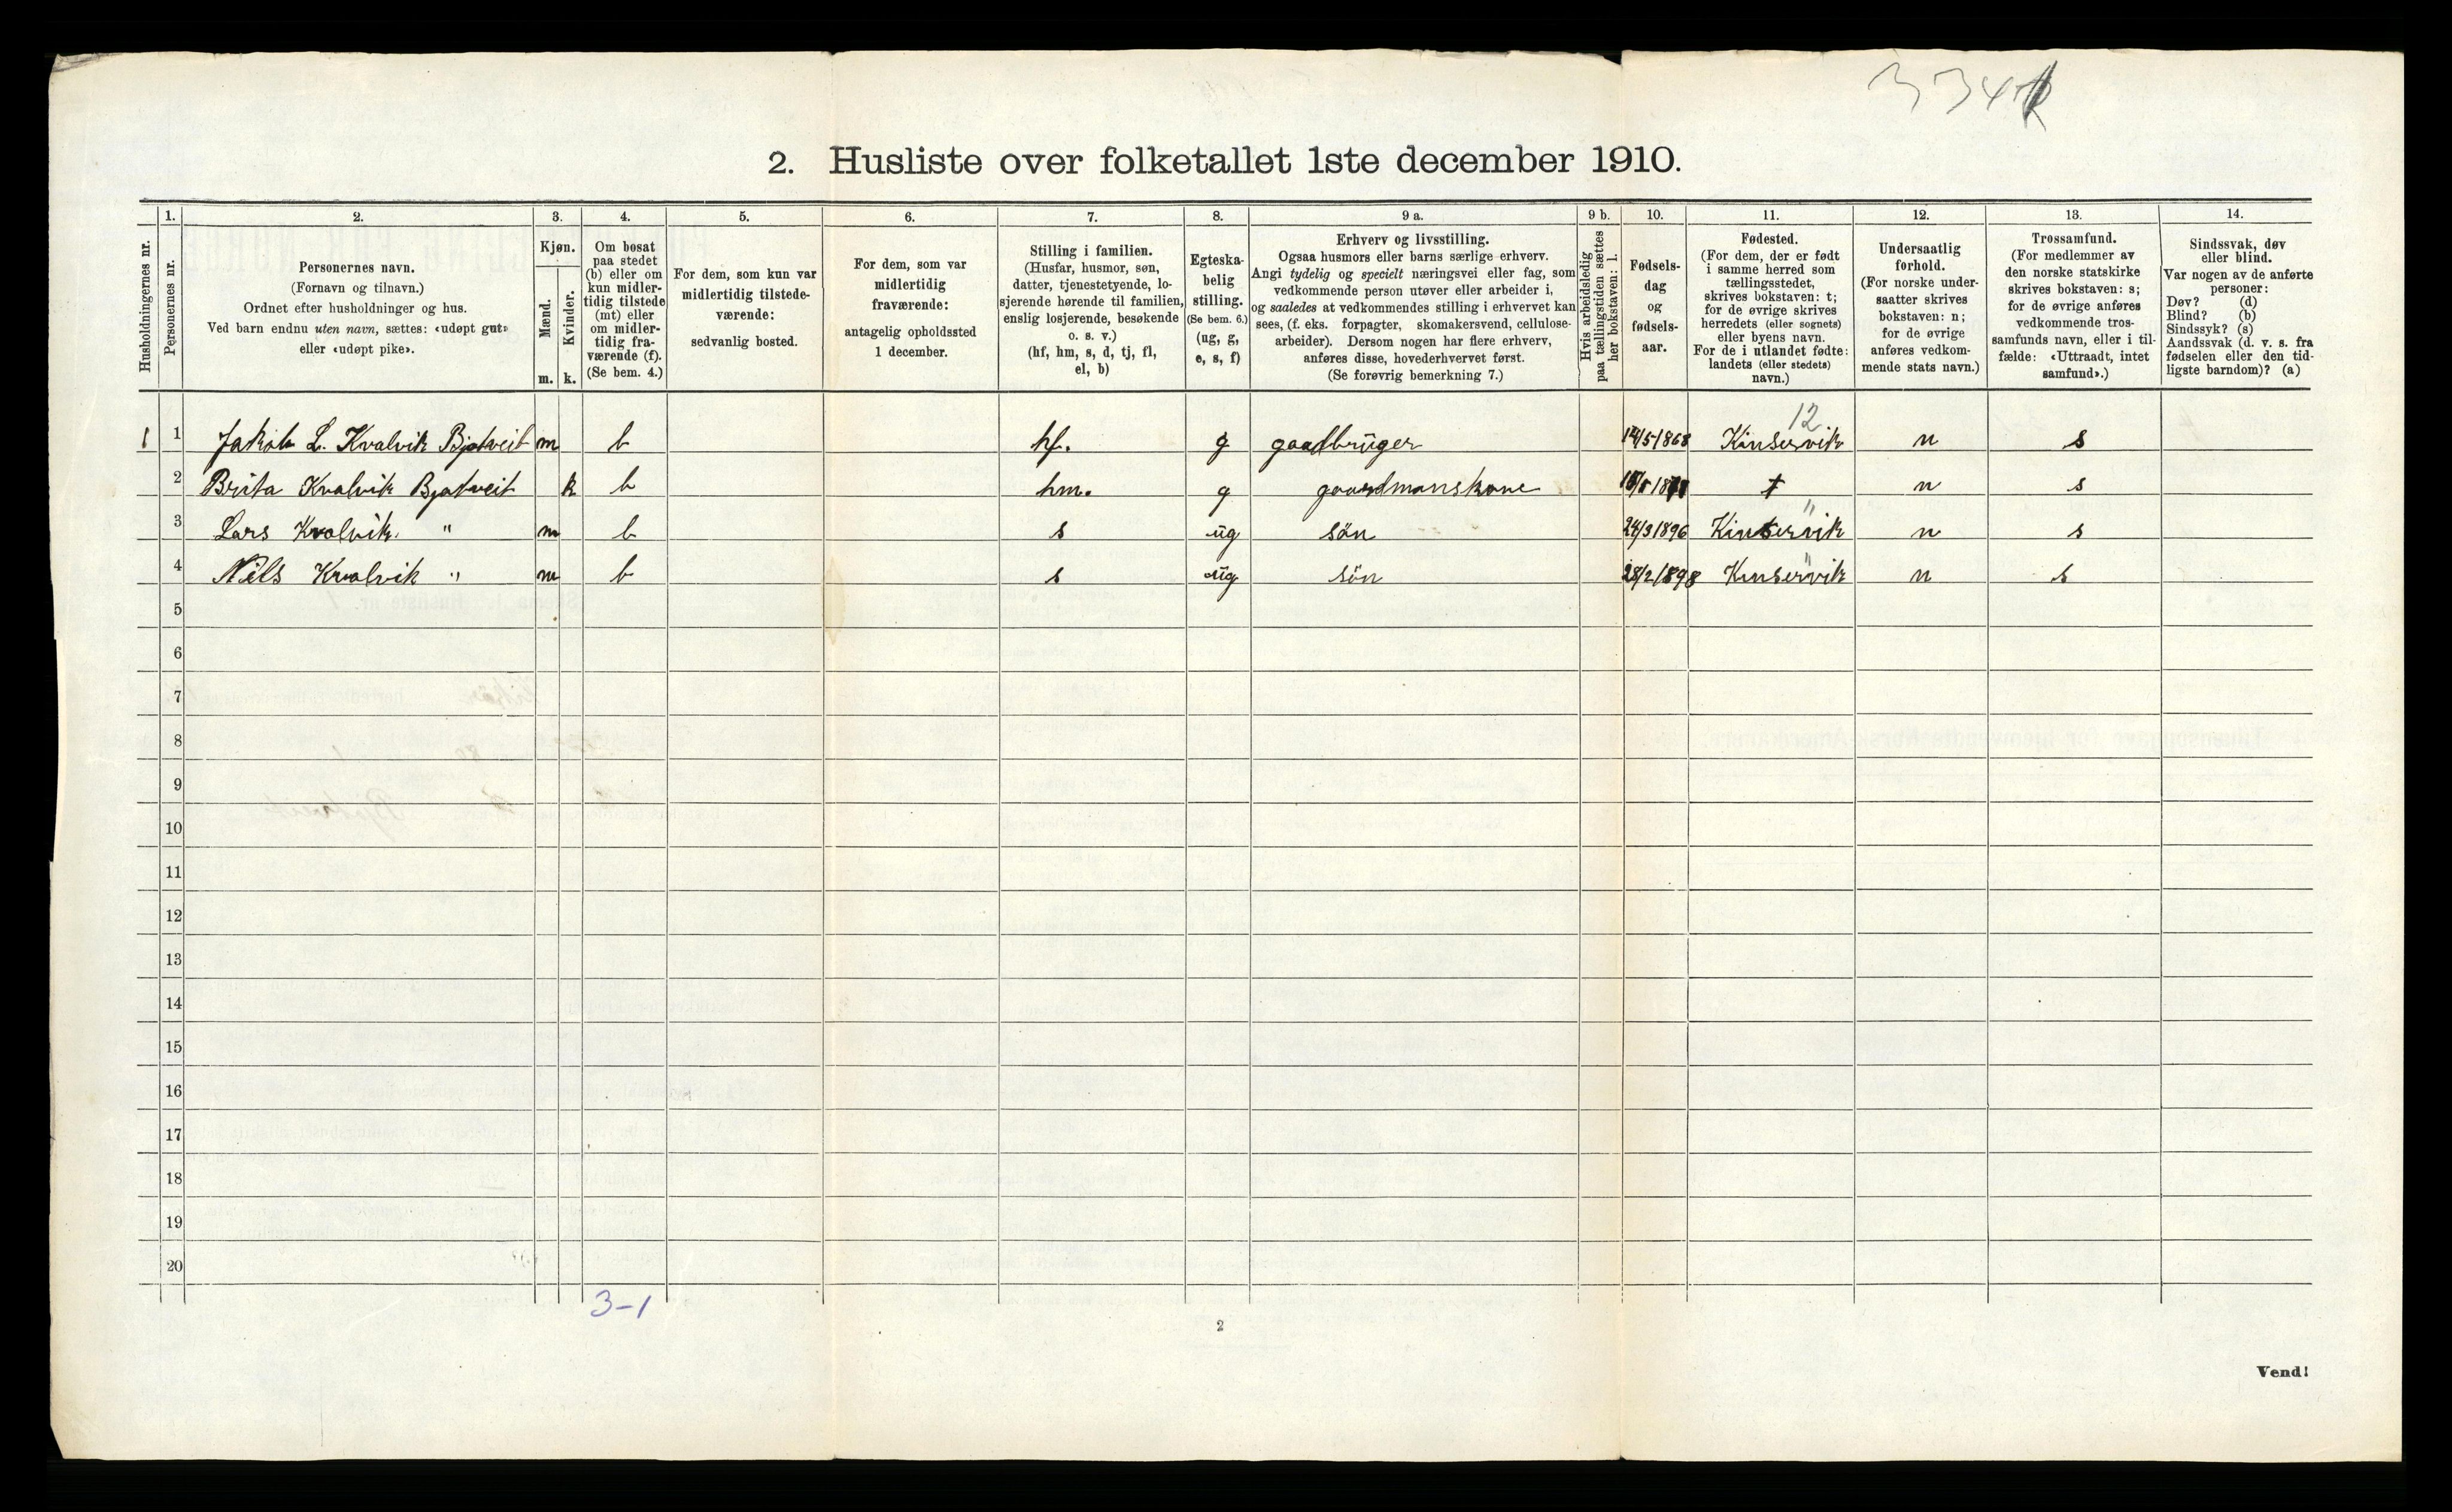 2. Husliste over folketallet 1ste december 1910.
Husholdningernes nr.
1.
Personernes nr.
2.
Personernes navn.
(Fornavn og tilnavn.)
Ordnet efter husholdninger og hus.
Ved barn endnu uten navn, sættes: «udøpt gut»
eller «udøpt pike».
3.
Kjøn.
Mænd.
m.
Kvinder.
k.
4.
Om bosat
paa stedet
(b) eller om
kun midler-
tidig tilstede
(mt) eller
om midler-
tidig fra-
værende (f).
(Se bem. 4.)
5.
For dem, som kun var
midlertidig tilstede-
værende:
sedvanlig bosted.
6.
For dem, som var
midlertidig
fraværende:
antagelig opholdssted
1 december.
7.
Stilling i familien.
(Husfar, husmor, søn,
datter, tjenestetyende, lo-
sjerende hørende til familien,
enslig losjerende, besøkende
o. s. v.)
(hf, hm, s, d, tj, fl,
el, b)
8.
Egteska-
belig
stilling.
(Se bem. 6.)
(ug, g,
e, s, f)
9 a.
Erhverv og livsstilling.
Ogsaa husmors eller barns særlige erhverv.
Angi tydelig og specielt næringsvei eller fag, som
vedkommende person utøver eller arbeider i,
og saaledes at vedkommendes stilling i erhvervet kan
sees, (f. eks. forpagter, skomakersvend, cellulose-
arbeider). Dersom nogen har flere erhverv,
anføres disse, hovederhvervet først.
(Se forøvrig bemerkning 7.)
9 b.
Hvis arbeidsledig
paa tællingstiden sættes
her bokstaven: l.
10.
Fødsels-
dag
og
fødsels-
aar.
11.
Fødested.
(For dem, der er født
i samme herred som
tællingsstedet,
skrives bokstaven: t;
for de øvrige skrives
herredets (eller sognets)
eller byens navn.
For de i utlandet fødte:
landets (eller stedets)
navn.)
12.
Undersaatlig
forhold.
(For norske under-
saatter skrives
bokstaven: n;
for de øvrige
anføres vedkom-
mende stats navn.)
13.
Trossamfund.
(For medlemmer av
den norske statskirke
skrives bokstaven: s;
for de øvrige anføres
vedkommende tros-
samfunds navn, eller i til-
fælde: «Uttraadt, intet
samfund».)
14.
Sindssvak, døv
eller blind.
Var nogen av de anførte
personer:
Døv? (d)
Blind? (b)
Sindssyk? (s)
Aandssvak (d. v. s. fra
fødselen eller den tid-
ligste barndom)? (a)
12
1 1 Jakob L. Kvalvik Bjotveit m b hf. g gaadbrüger 14/5 1868 Kinservik n s
2 Brita Kvalvik Bjotveit k b hm. g gaardmanskone t n s
3 Lars Kvalvik. " m b s ug sön 24/3 1896 Kinservik n s
4 Nils Kvalvik " m b s ug sön 28/2 1898 Kinservik n s
5
6
7
8
9
10
11
12
13
14
15
16
17
18
19
20
3-1
2
Vend!